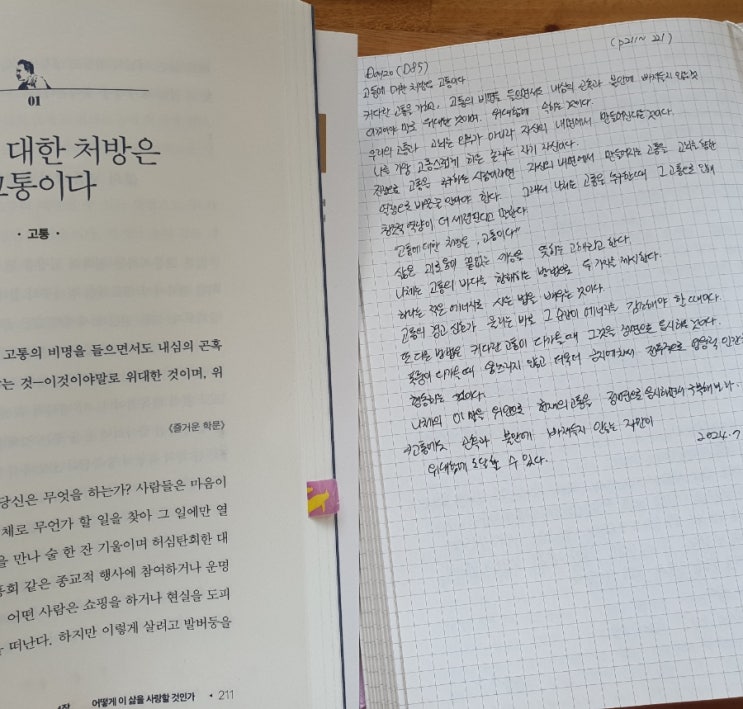 01
대한 처방은
고통이다
· 고통 ·
고통의 비명을 들으면서도 내심의 곤혹
는 것—이것이야말로 위대한 것이며, 위
《즐거운 학문》
당신은 무엇을 하는가? 사람들은 마음이
체로 무언가 할 일을 찾아 그 일에만 열
을 만나 술 한 잔 기울이며 허심탄회한 대
회 같은 종교적 행사에 참여하거나 운명
어떤 사람은 쇼핑을 하거나 현실을 도피
떠난다. 하지만 이렇게 살려고 발버둥을
어떻게 이 삶을 사랑할 것인가 · 211
Day20 (D85) (p211~221)
고통에 대한 처방은 고통이다
커다란 고통을 가하고, 고통의 비명을 들으면서도 내심의 곤혹과 불안에 빠져들지 않는 것
이것이야말로 위대한 것이며, 위대함에 속하는 것이다.
우리의 고통과 고뇌는 외부가 아니라 자신의 내면에서 만들어진다는 것이다.
나를 가장 고통스럽게 하는 존재는 자기 자신이다.
진정으로 고통을 극복하는 사람이라면 자신의 내면에서 만들어지는 고통을 고뇌를 통한
역량으로 바꿀 줄 알아야 한다. 그래서 니체는 고통을 누구한테 그 고통으로 인해
창조적 역량이 더 세련된다고 말한다.
"고통에 대한 처방은, 고통이다"
삶은 괴로움의 끝없는 가능을 뜻하는 고해라고 한다.
니체는 고통의 바다를 항해하는 방법으로 두 가지를 제시한다.
하나는 적은 에너지로 사는 법을 배우는 것이다.
고통의 경고 신호가 울리는 바로 그 순간이 에너지를 감소해야 한 때이다.
또 다른 방법은 커다란 고통이 다가올 때 그것을 정면으로 응시하는 것이다.
폭풍이 다가올 때 움츠리지 않고 더욱더 긍지에 차서 전투적으로 영웅적 인간
행동하는 것이다.
니체의 이 말을 위안으로 현재의 고통을 정면으로 응시하면서 극복해보자..
고통에도 곤혹과 불안에 빠져들지 않는 자만이
위대함에 도달할 수 있다. 2024.7